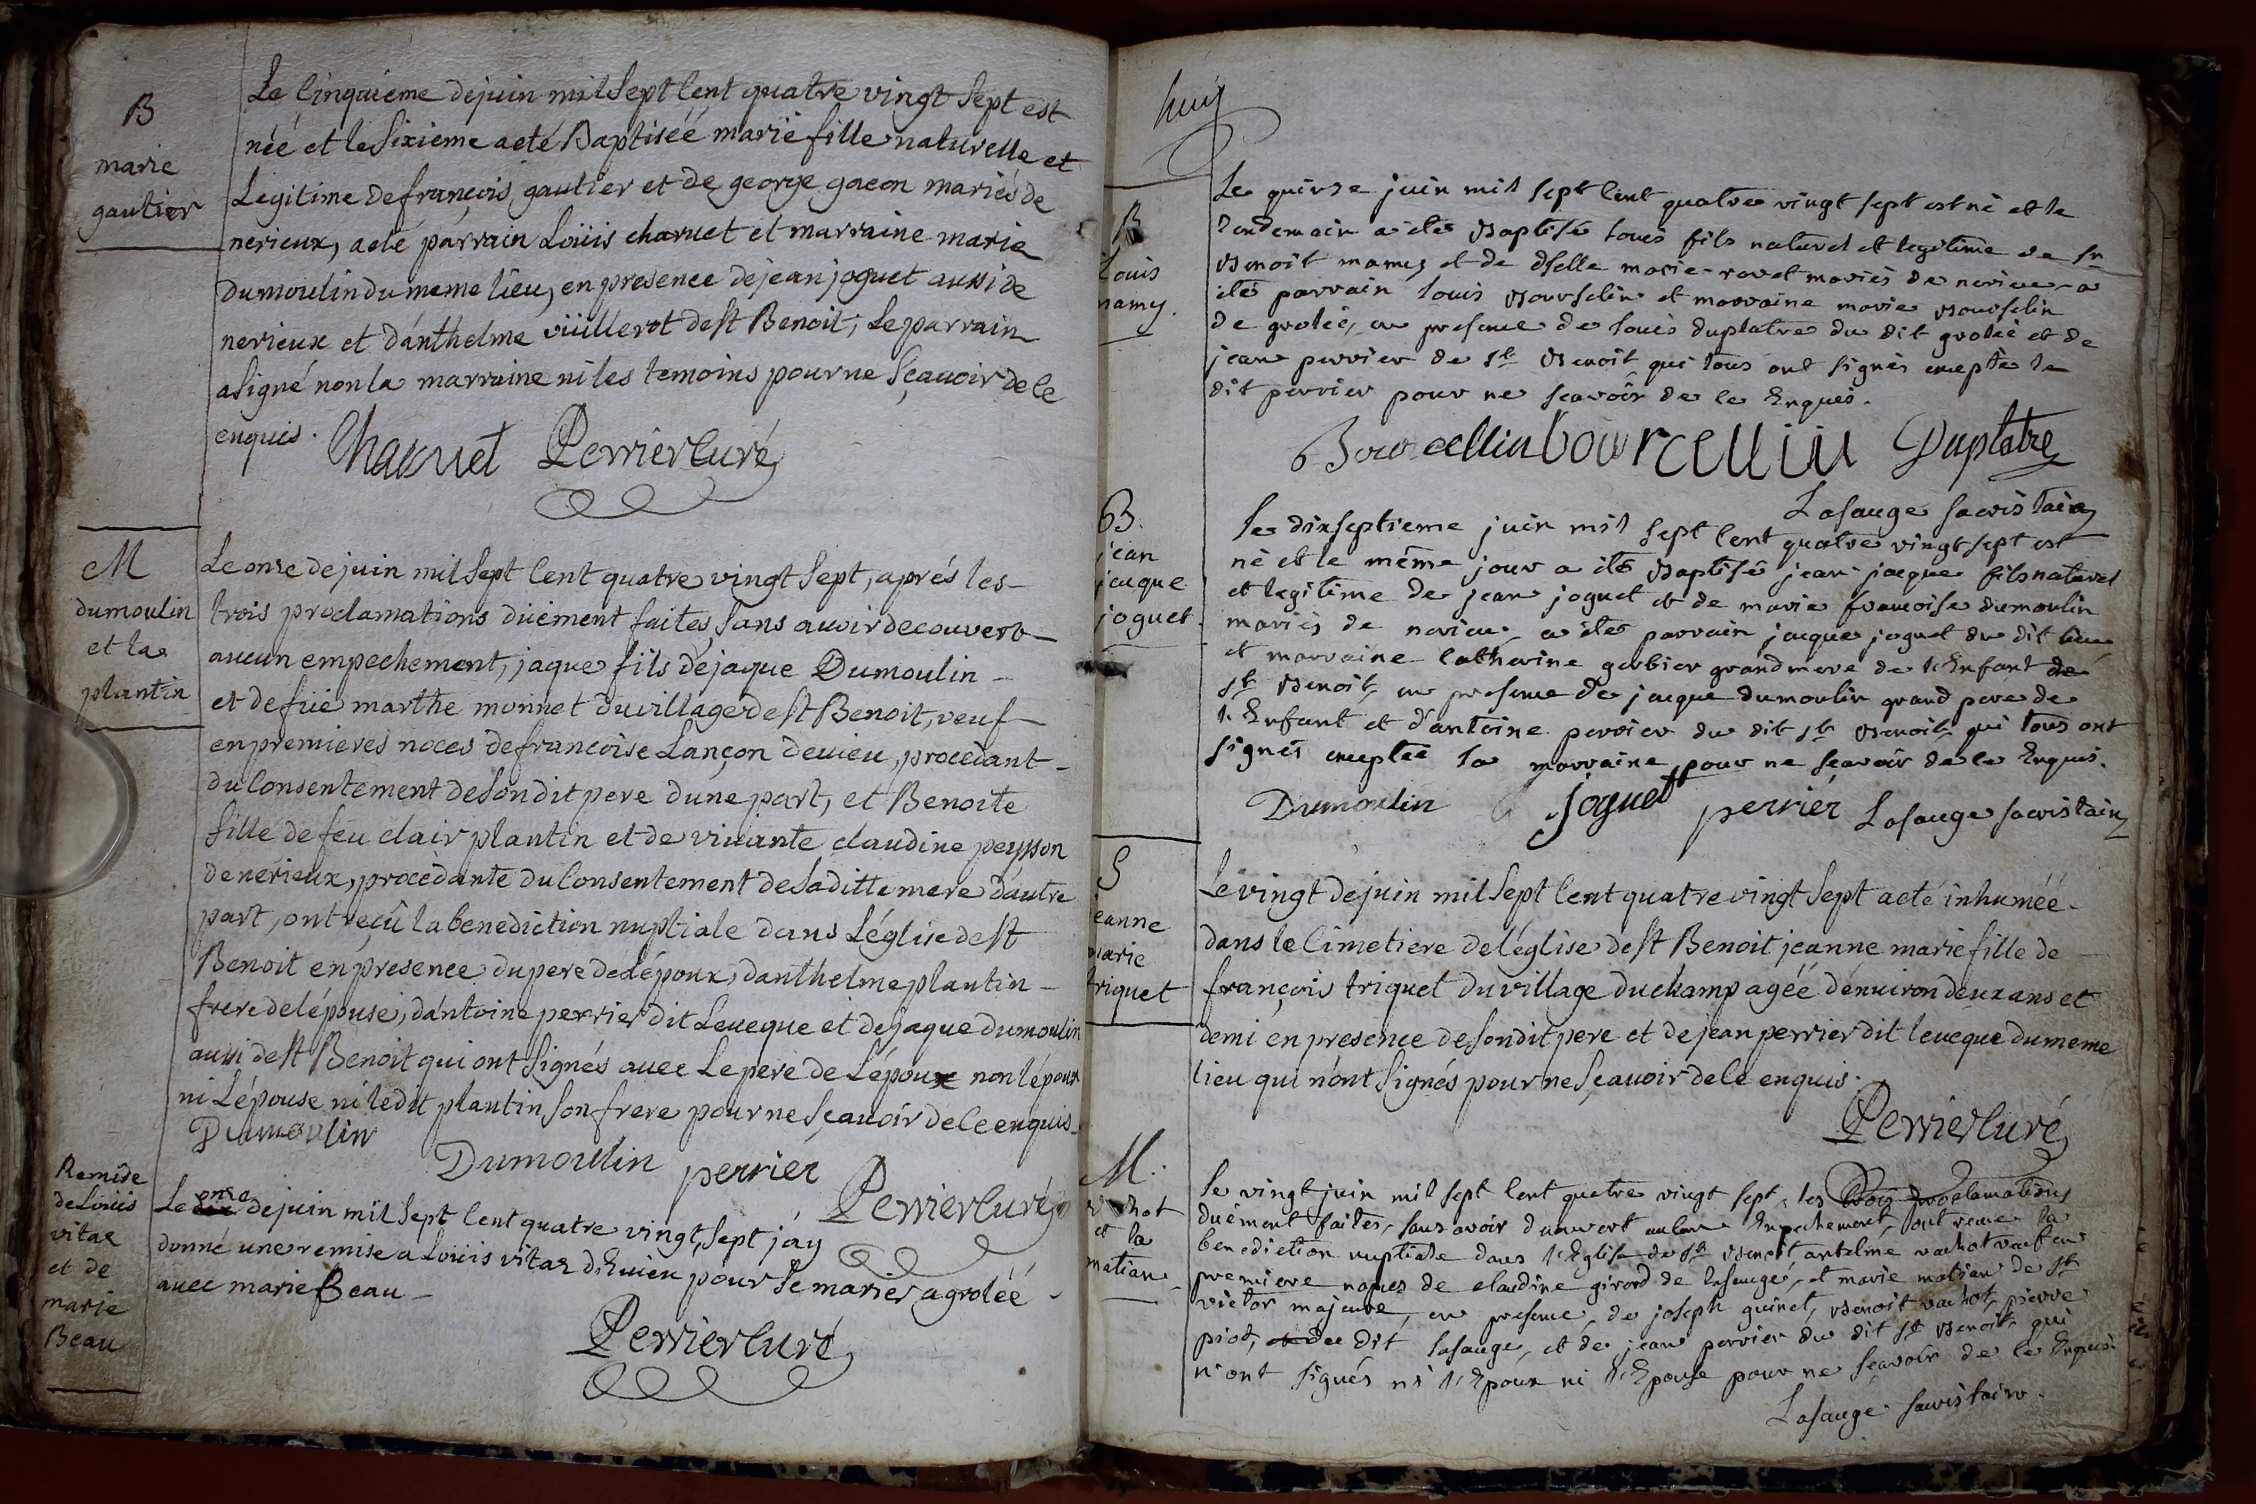 B
marie
gautier
Le Cinquieme de juin mil Sept Cent quatre vingt Sept est
néé et le Sixieme a eté Baptiséé marie fille naturelle et
Legitime de françois gautier et de george gacon mariés de
nerieux, a eté parrain Loüis charvet et marraine marie
Dumoulin du meme lieu, en presence de jean joguet aussi de
nerieux et d'anthelme vüillerot de st Benoit; Le parrain
a Signé non la marraine ni les temoins pour ne Sçavoir de ce
enquis.
Charvet Perrier Curé
M
dumoulin
et la
plantin
Le onze de juin mil Sept Cent quatre vingt Sept, aprés les
trois proclamations düement faites, Sans avoir decouvert
aucun empechement, jaque fils de jaque Dumoulin
et de füe marthe monnet du village de st Benoit, veuf
en premieres noces de francoise Lançon devieu, procedant
du Consentement de Son dit pere dune part, et Benoite
fille de feu clair plantin et de vivante claudine peysson
de nerieux, procedante du Consentement de Sa ditte mere d'autre
part, ont reçû la benediction nuptiale dans L'église de st
Benoit en presence du pere de Lépoux, danthelme plantin
frere de lépouse, d'antoine perrier dit Leveque et de jaque dumoulin
aussi de st Benoit qui ont Signés avec Le pere de Lépoux non lépoux
ni Lépouse ni ledit plantin Son frere pour ne Sçavoir de ce enquis.
Dumoulin
Dumoulin perrier
Perrier Curé
Remise
de Loüis
vitaz
et de
marie
Beau
onze
Le dix de juin mil Sept Cent quatre vingt, Sept j'ay
donné une remise a Loüis vitaz d'Evieu pour Se marier a groléé
avec marie Beau
Perrier Curé
huij
B
Louis
mamy.
Le quinze juin mil sept Cent quatre vingt sept est né et le
Lendemain a etée Baptisé Louis fils naturel et legitime de sr
Benoit mamy et de dselle marie ravet mariés de nerieu, a
étés parrain Louis Bourselin et marraine marie Bourselin
de groléé, en presence de Louis duplatre du dit groléé et de
jean perrier de st Benoit qui tous ont signés exceptée le
dit perrier pour ne Scavoir de ce Enquis.
Bourcellin bourcellin Duplatre
Lasauge sacristain
B.
jean
jacque
joguet.
Le dixseptieme juin mil sept Cent quatre vingt sept est
né et le même jour a été Baptisé jean-jacque fils naturel
et legitime de jean joguet et de marie francoise dumoulin
mariés de nerieu, a étés parrain jacque joguet du dit lieu
et marraine Catherine gerbier grandmere de l'Enfant de
st Benoit, en presence de jacque dumoulin grand pere de
l'Enfant et d'antoine perrier du dit st Benoit qui tous ont
signés exceptée la marraine pour ne scavoir de ce Enquis.
Dumoulin joguet perrier Lasauge sacristain
S
jeanne
marie
triquet
Le vingt de juin mil Sept Cent quatre vingt Sept a eté inhuméé
dans le Cimetiere de léglise de st Benoit jeanne marie fille de
françois triquet du village du champ agéé d'environ deux ans et
demi en presence de Son dit pere et de jean perrier dit leveque du meme
lieu qui n'ont Signés pour ne Sçavoir de ce enquis.
Perrier Curé
M.
vachot
et la
matian
Le vingt juin mil sept Cent quatre vingt sept, les trois proclamations
duément faites, sans avoir d'ecouvert aucun Enpechement, ont recue la
benediction nuptiale dans l'Eglise de st Benoit, antelme vachot veuf en
premiere nopces de claudine girord de lasauge, et marie matian de st
victor majeure, en presence de joseph guinet, Benoit vachot, pierre
piot, du dit lasauge, et de jean perrier du dit st Benoit qui
n'ont signés ni l'Epoux ni l'Epouse pour ne scavoir de ce Enquis.
Lasauge sacristain.